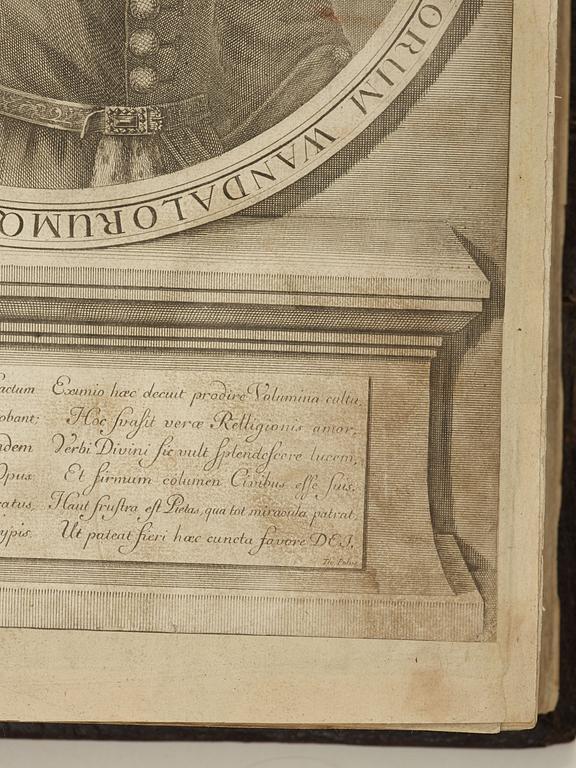 TORUM WANDALORUMQ
actum Eximio hæc decuit prodire Volumina cultu,
obant; Hoc svasit veræ Relligionis amor,
ndem Verbi Divini sic vult splendescere lucem,
Opus Et firmum columen Civibus esse suis.
catus, Haut frustra est Pietas, qua tot miracula patrat,
typis. Ut pateat fieri hæc cuncta favore DEI.